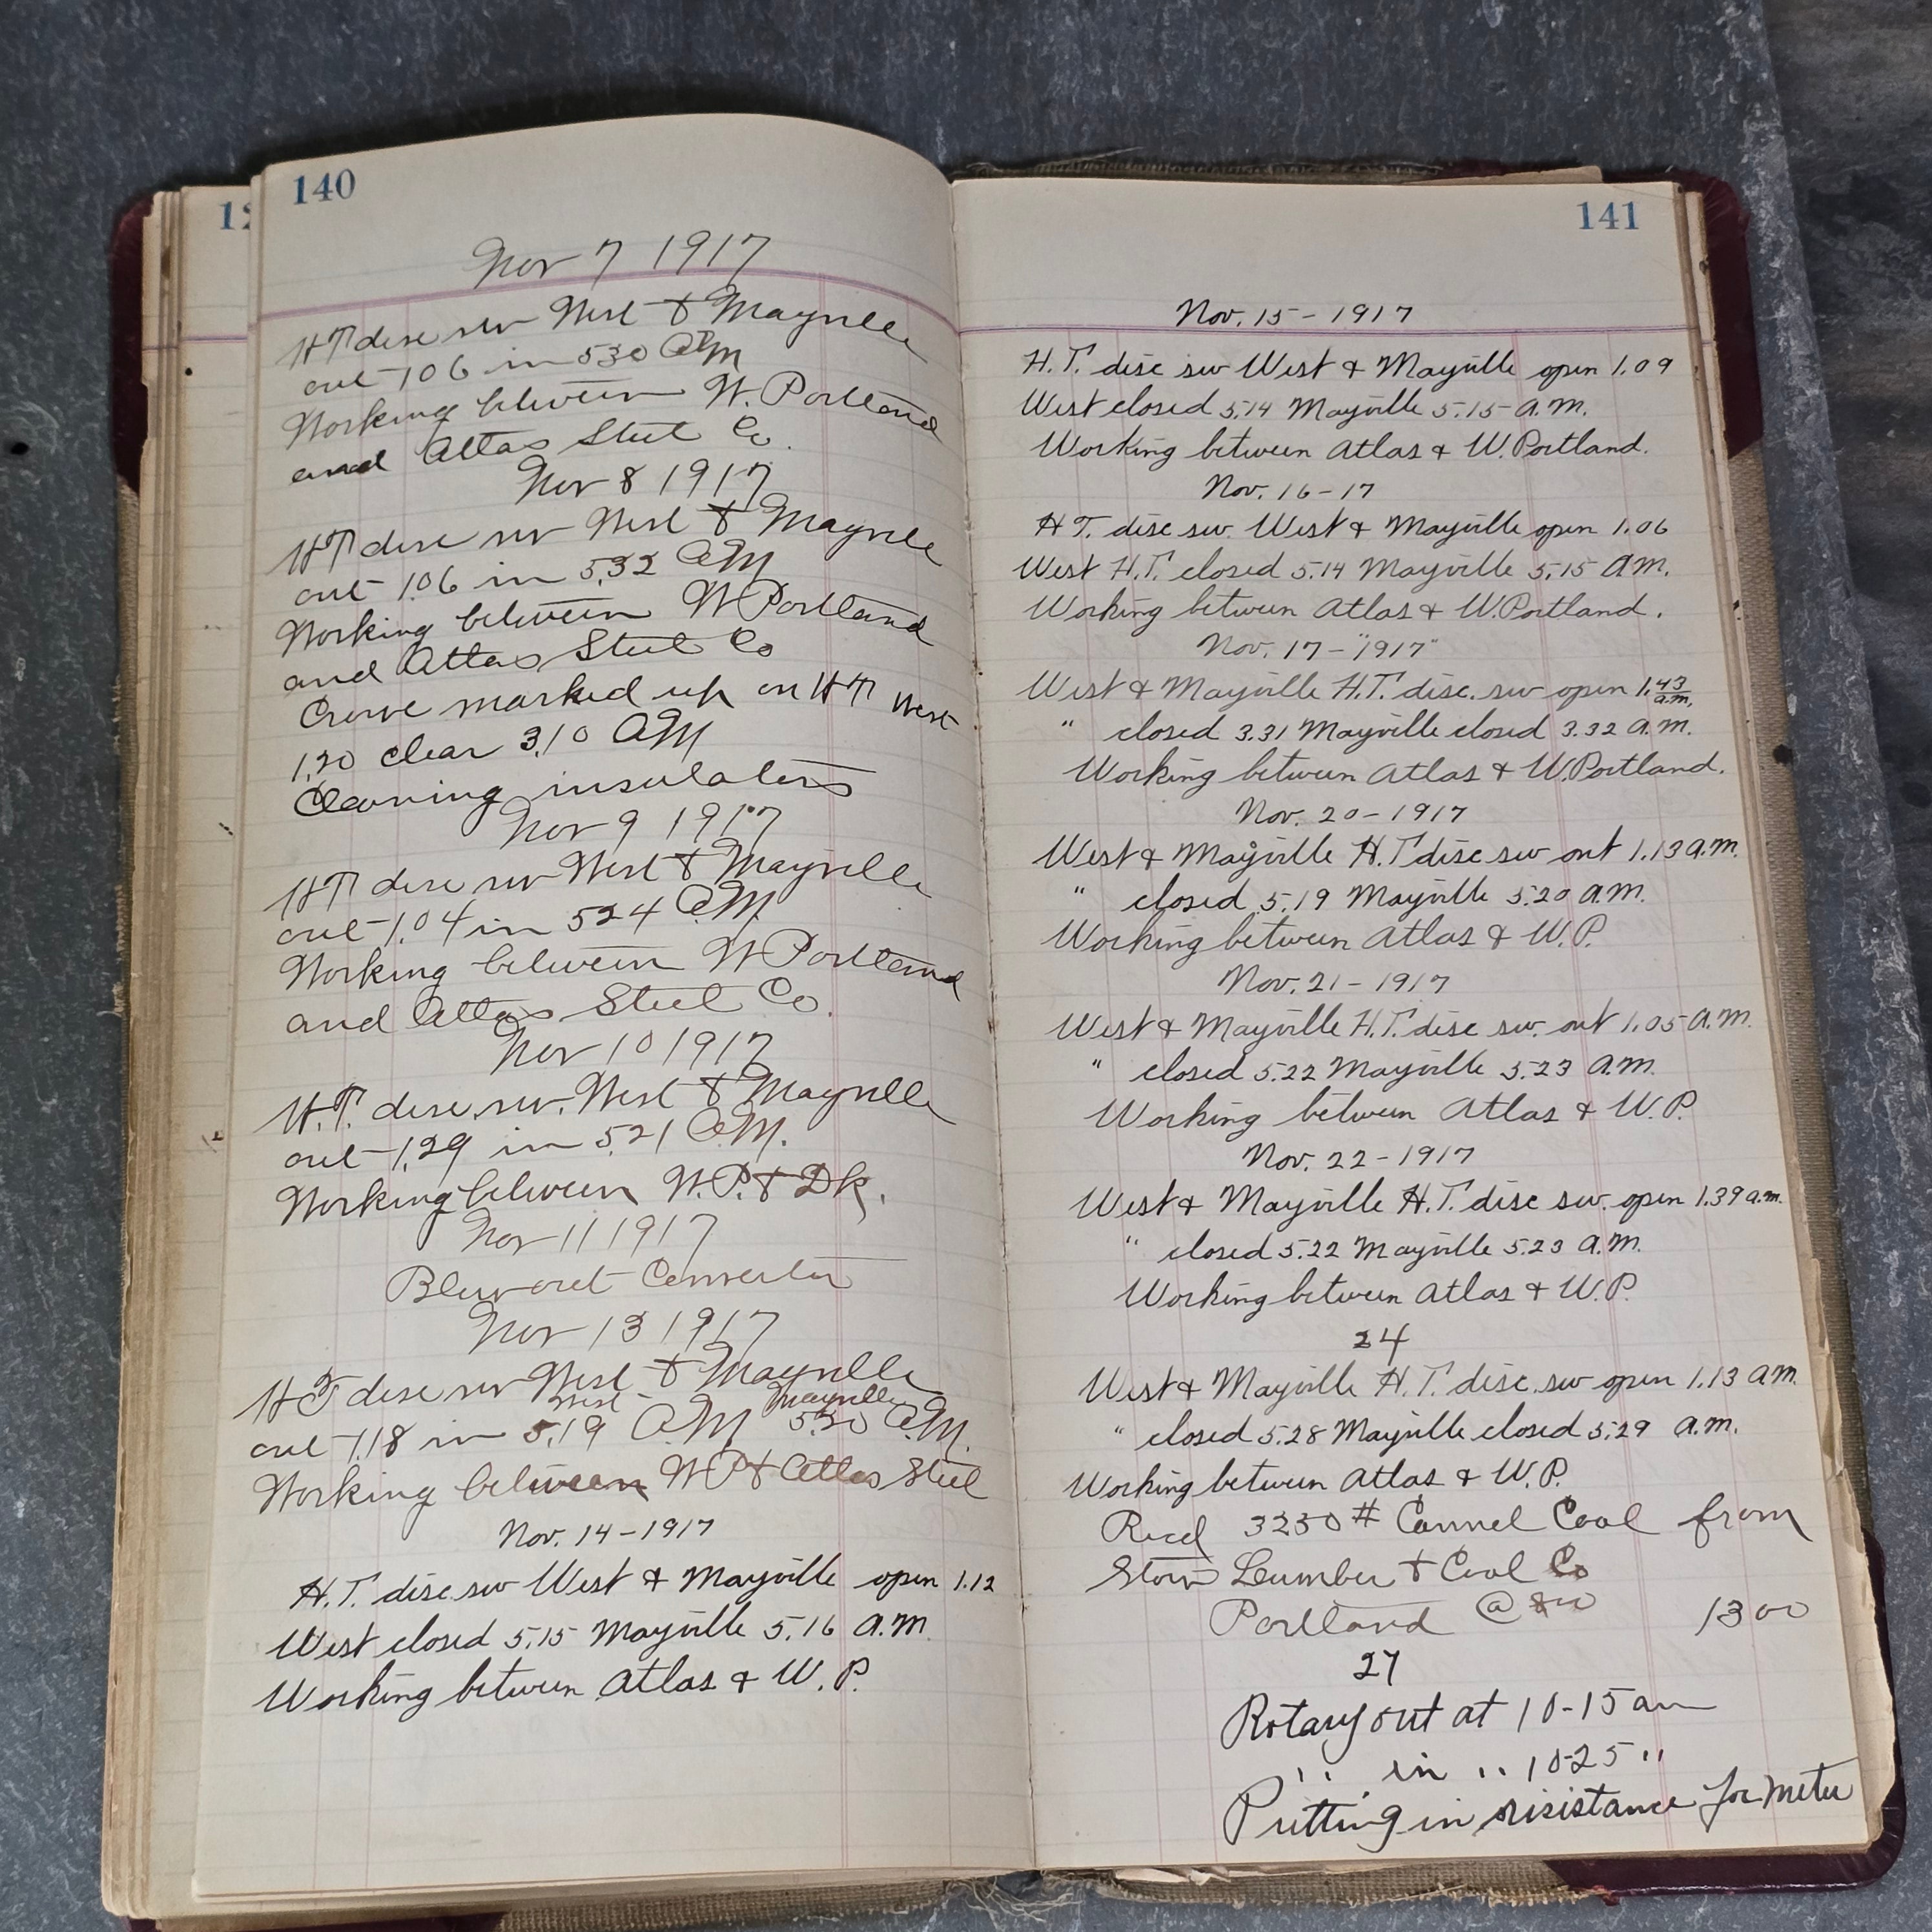 12
140
Nov 7 1917
HT disc sw West & Mayville
out 106 in 530 AM
Working between W. Portland
and Atlas Steel Co.
Nov 8 1917
HT disc sw West & Mayville
out 106 in 5.32 AM
Working between W Portland
and Atlas Steel Co
Crew marked up on HT West
1.20 clear 3.10 AM
Cleaning insulators
Nov 9 1917
HT disc sw West & Mayville
out 1.04 in 524 AM
Working between W Portland
and Atlas Steel Co.
Nov 10 1917
H.T. disc sw. West & Mayville
out 1.29 in 5.21 AM.
Working between W.P. & Dk.
Nov 11 1917
Blew out Converter
Nov 13 1917
HT disc sw West & Mayville
West Mayville
out 1.18 in 5.19 AM 5.20 AM.
Working between WP & Atlas Steel
Nov. 14-1917
H.T. disc. sw West & Mayville open 1.12
West closed 5.15 Mayville 5.16 A.M.
Working between Atlas & W.P.
141
Nov. 15-1917
H.T. disc sw West & Mayville open 1.09
West closed 5.14 Mayville 5.15 A.M.
Working between Atlas & W.Portland.
Nov. 16-17
HT. disc sw. West & Mayville open 1.06
West H.T. closed 5.14 Mayville 5.15 AM.
Working between Atlas & W.Portland.
Nov. 17-"1917"
West & Mayville H.T. disc. sw open 1.43 a.m.
" closed 3.31 Mayville closed 3.32 A.M.
Working between Atlas & W.Portland.
Nov. 20-1917
West & Mayville H.T disc sw out 1.13 a.m.
" closed 5.19 Mayville 5.20 A.M.
Working between Atlas & W.P.
Nov. 21-1917
West & Mayville H.T. disc sw. out 1.05 A.M.
" closed 5.22 Mayville 5.23 A.M.
Working between Atlas & W.P.
Nov. 22-1917
West & Mayville H.T. disc sw. open 1.39 a.m.
" closed 5.22 Mayville 5.23 A.M.
Working between Atlas & W.P.
24
West & Mayville H.T. disc. sw open 1.13 AM.
" closed 5.28 Mayville closed 5.29 A.M.
Working between Atlas & W.P.
Recd 3250 # Cannel Coal from
Lumber & Coal Co
Portland @ 800 1300
27
Rotary out at 10-15 am
" in " 10-25 "
Putting in resistance for meter